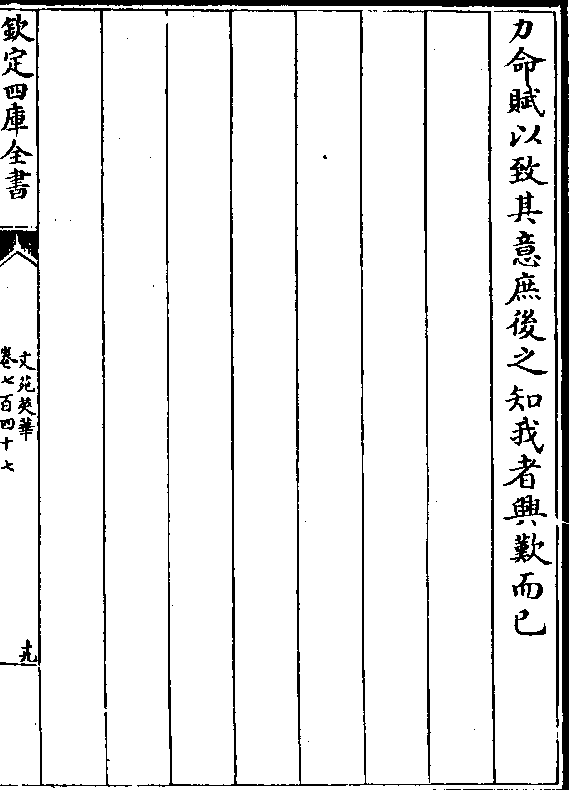 力命賦以致其意庶後之知我者興歎而已
欽定四庫全書
文苑英華
卷七百四十七
十九